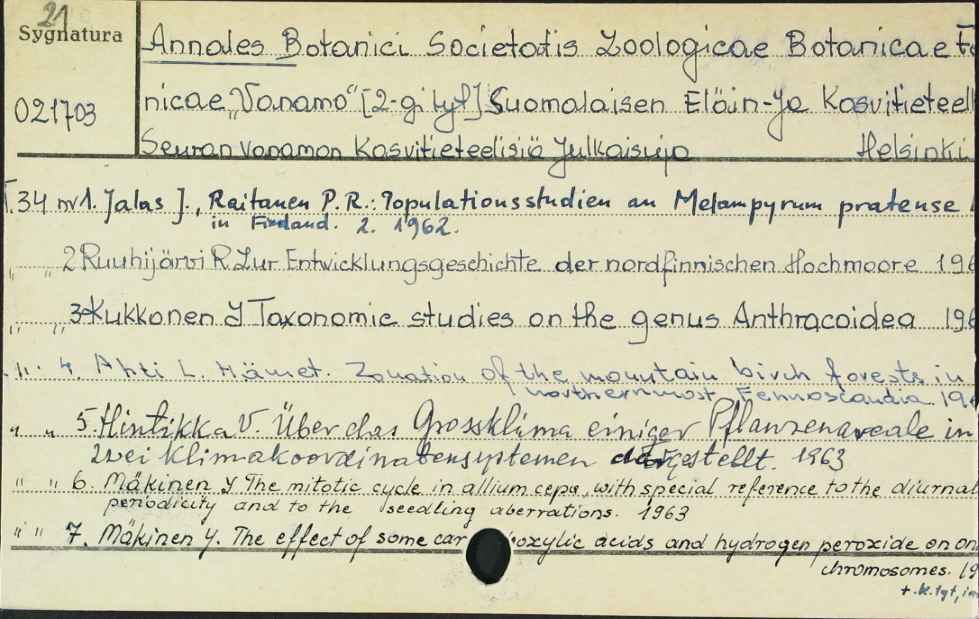 21
Sygnatura
021703
Annales Botanici Societatis Zoologicae Botanicae Fe
nicae „Vanamo“ [2-gi tyt] Suomalaisen Eläin-Ja Kasvitieteel
Seuran Vanamon Kasvitieteelisiä Julkaisuja Helsinki
T.34 nr 1. Jalas J., Raitanen P.R.: Populationsstudien an Melampyrum pratense
in Finland. 2. 1962.
„ „ 2 Ruuhijärvi R Zur Entwicklungsgeschichte der nordfinnischen Hochmoore 196
„ „ 3 Kukkonen Y Taxonomic studies on the genus Anthracoidea 196
„ 4. Ahti L. Hämet. Zonation of the mountain birch forests in
northernmost Fennoscandia 19
„ „ 5. Hintikka V. Über das Grossklima einiger Pflanzenareale in
zwei klimakoordinatensystemen dargestellt. 1963
" " 6. Mäkinen Y The mitotic cycle in allium cepa, with special reference to the diurnal
periodicity and to the seedling aberrations. 1963
" " 7. Mäkinen Y. The effect of some car oxylic acids and hydrogen peroxide on on
chromosomes. 19
+ k. tyt,